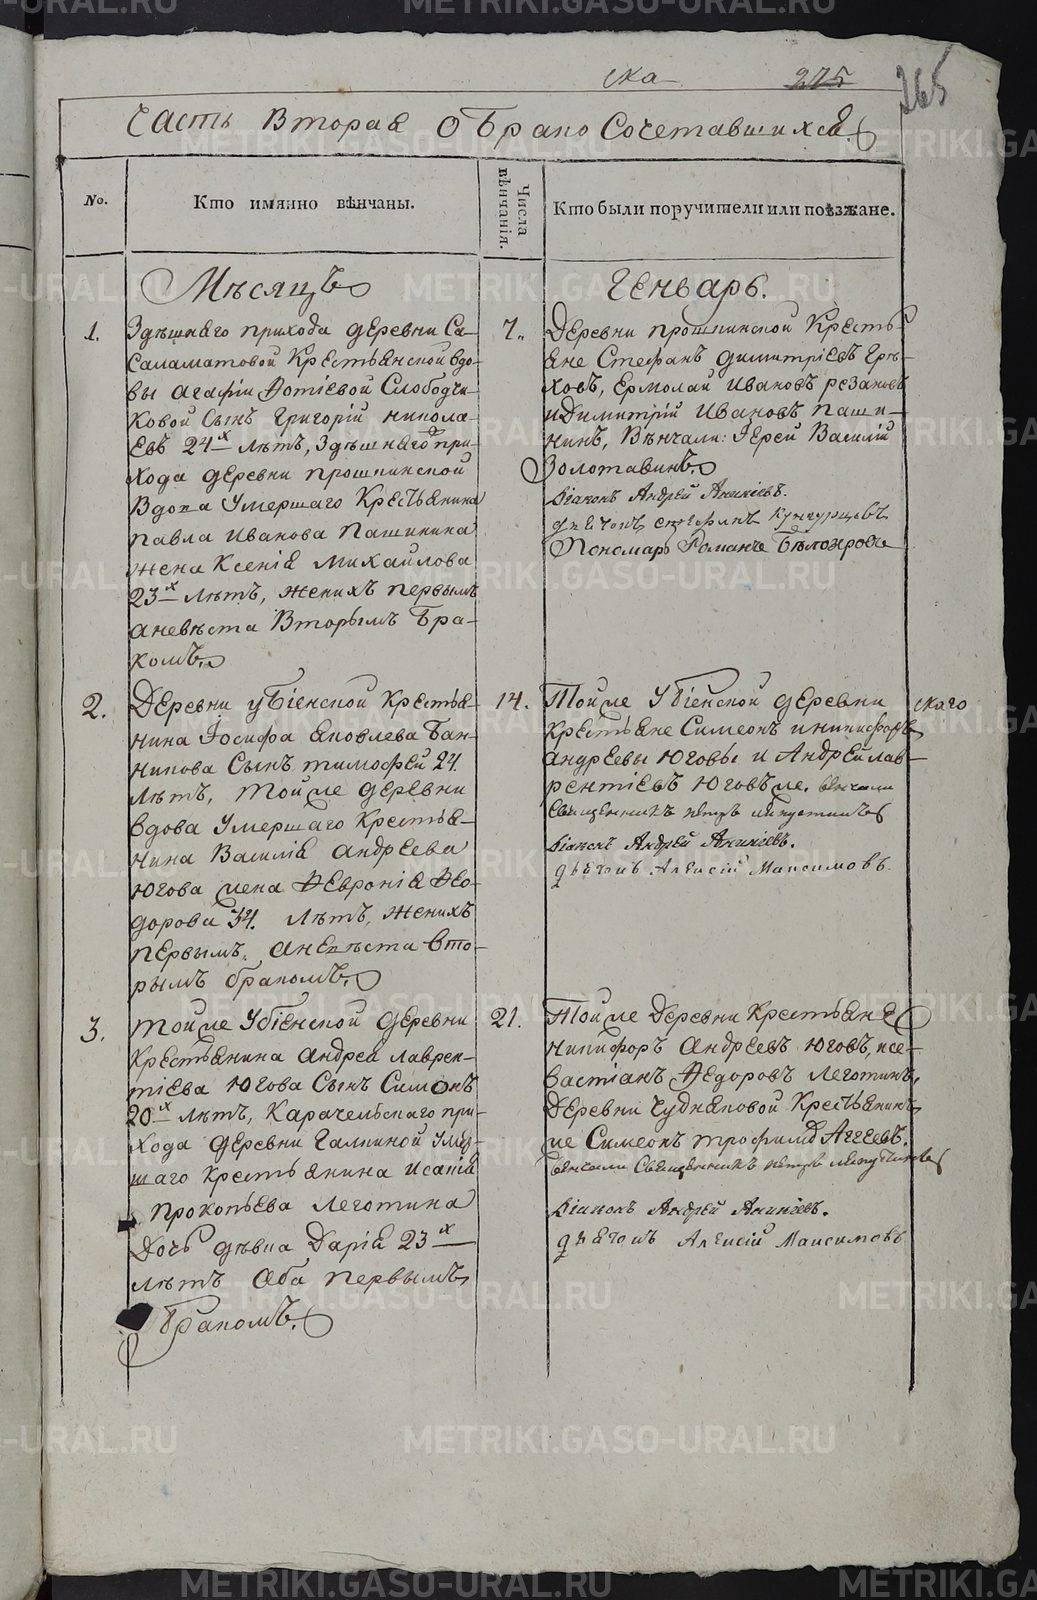 ска 275
265
Часть Вторая о Бракосочетавшихся
No.
Кто имянно вѣнчаны.
Числа вѣнчанія.
Кто были поручители или поѣзжане.
Мѣсяцъ
Генварь.
1.
Здѣшняго прихода деревни Са-
саламатовой Крестьянской вдо-
вы Агафіи Фотіевой Слободчи-
ковой Сынъ Григорій никола-
евъ 24х лѣтъ, Здѣшняго при-
хода деревни прошкинской
Вдова Умершаго Крестьянина
павла Иванова Пашинина
жена Ксенія Михайлова
23х лѣтъ, женихъ первымъ
аневѣста Вторымъ Бра-
комъ.
7.
Деревни прошкинской Кресть-
яне Стефанъ димитріевъ Грѣ-
ховъ, Ермолай Ивановъ резановъ
иДимитрій Ивановъ паши-
нинъ, Вѣнчали: Іерей Василій
Золотавинъ
Діаконъ Андрей Аникіевъ.
дьячокъ стефанъ Кунгурцовъ
Пономарь Романъ Бѣлозеровъ
2.
Деревни убіенской крестья-
нина Іосифа яковлева Бан-
никова Сынъ тимофей 24.
лѣтъ, Тойже деревни
вдова Умершаго Крестья-
нина Василія Андреева
Югова жена Февронія Фео-
дорова 34. лѣтъ, женихъ
первымъ, аневѣста вто-
рымъ бракомъ.
14.
Тойже Убіенской деревни
крестьяне Симеонъ иникифоръ
андреевы Юговы и Андрей лав-
рентіевъ Юговъ же. венчали
Священникъ петръ
Діаконъ Андрей Аникіевъ.
дьячокъ Алексій Максимовъ
скаго
3.
тойже Убіенской деревни
Крестьянина андрея лаврен-
тіева Югова Сынъ Симонъ
20х лѣтъ, Карачельскаго при-
хода деревни Галкиной умер-
шаго крестьянина Исакія
прокопьева Леготина
Дочь дѣвка Дарія 23х
лѣтъ Оба первымъ
Бракомъ.
21.
Тойже Деревни Крестьяне
никифоръ Андреевъ Юговъ, исе-
вастіанъ Федоровъ леготинъ,
деревни Чудняковой Крестьянинъ
же Симеонъ трофимъ Аггеевъ.
венчали Священникъ петръ
Діаконъ Андрей Аникіевъ.
дьячокъ Алексій Максимовъ
METRIKI.GASO-URAL.RU